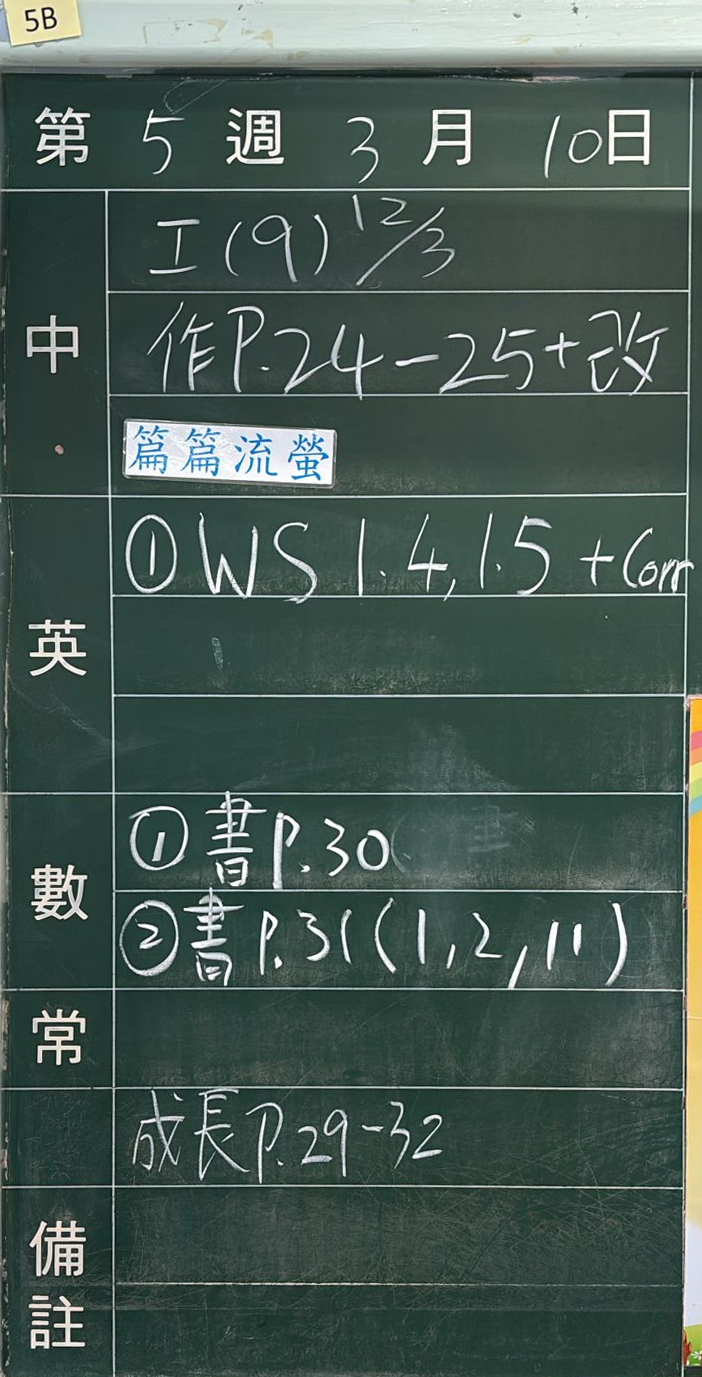 5B
第 5 週 3 月 10 日
中
工(9) 12/3
作P.24-25+改
篇篇流螢
英
①WS 1.4, 1.5 +Corr
數
①書P.30
②書P.31(1,2,11)
常
成長P.29-32
備註